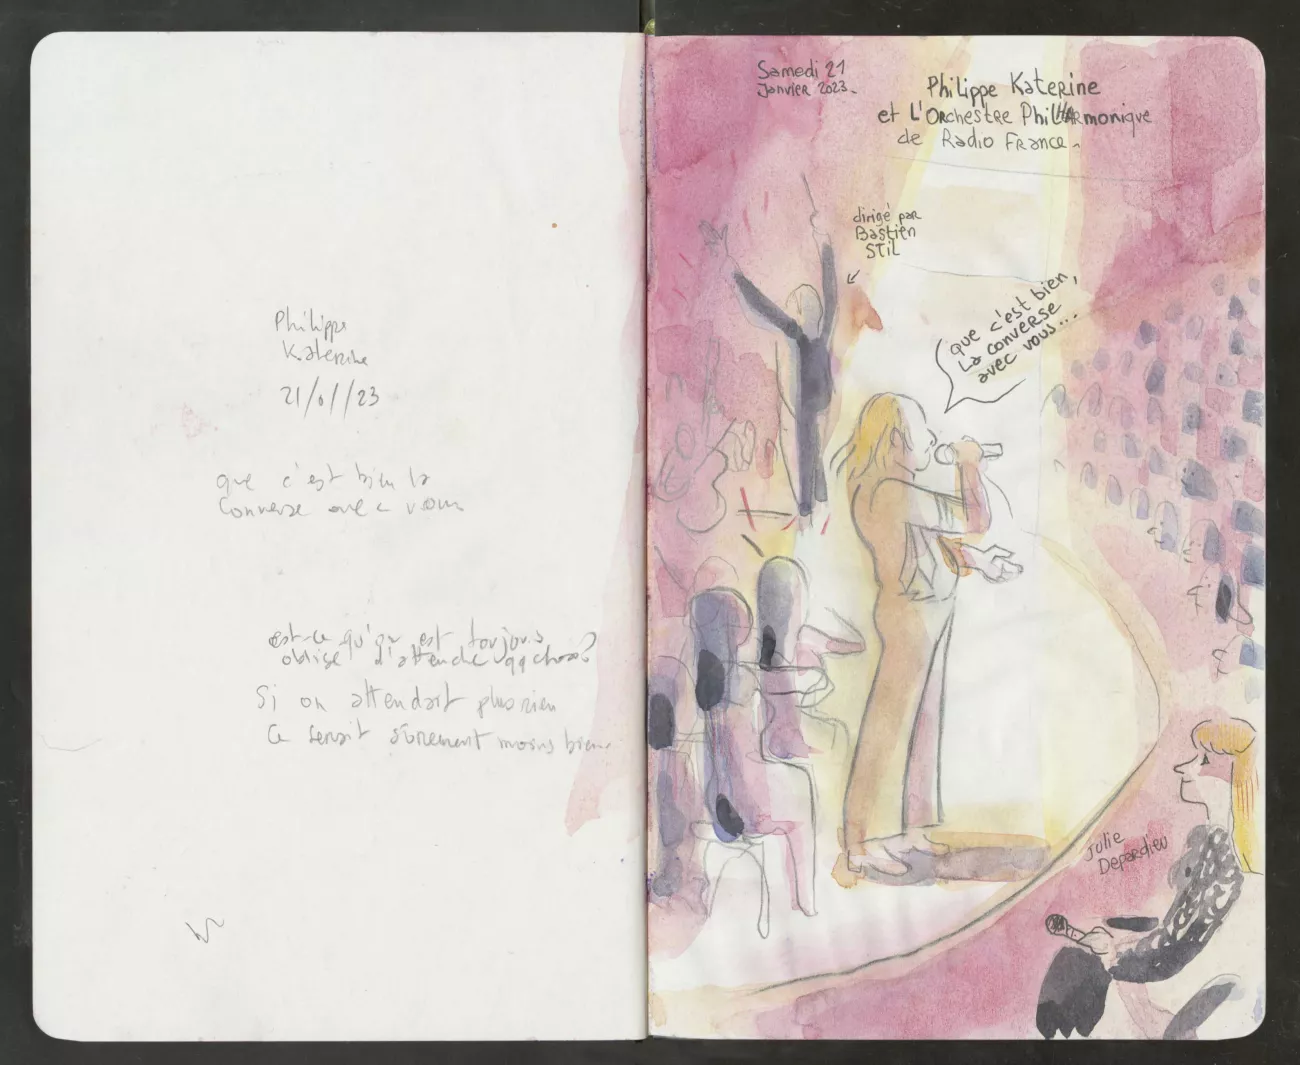 Philippe
Katerine
21/01/23
que c'est bien la
Converse avec vous
est-ce qu'on est toujours
obligé d'attendre qqchose?
Si on attendait plus rien
Ce serait sûrement moins bien
Samedi 21
Janvier 2023.
Philippe Katerine
et L'Orchestre Philharmonique
de Radio France.
dirigé par
Bastien
Stil
que c'est bien,
La converse
avec vous...
Julie
Depardieu